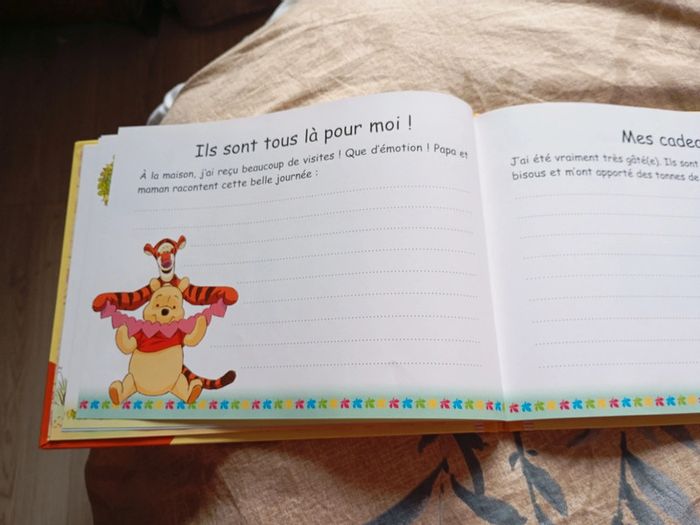 Ils sont tous là pour moi !
À la maison, j'ai reçu beaucoup de visites ! Que d'émotion ! Papa et
maman racontent cette belle journée :
Mes
J'ai été vraiment très gâté(e). Ils sont
bisous et m'ont apporté des tonnes de